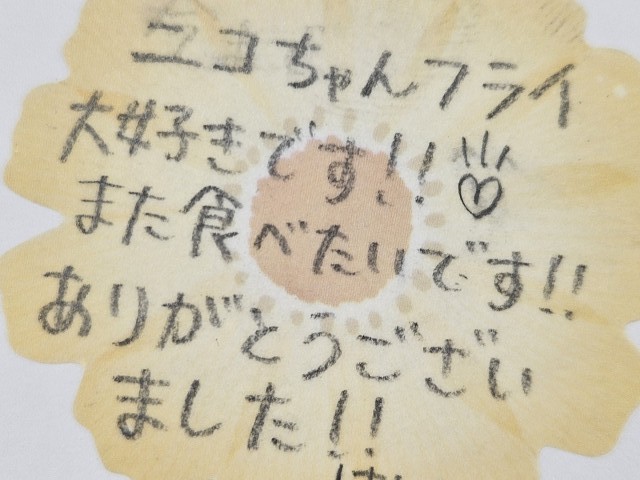 ユコちゃんフライ
大好きです!!♡
また食べたいです!!
ありがとうござい
ました!!